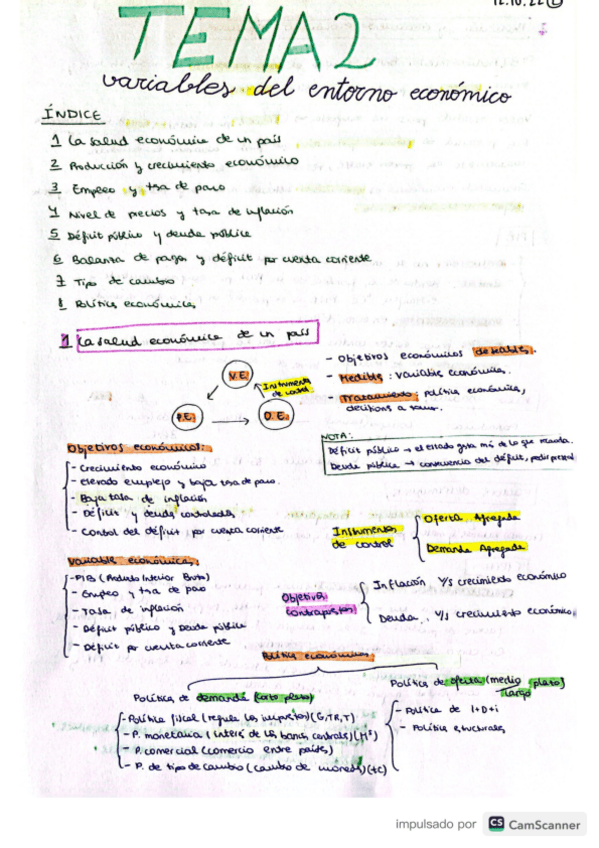 12.10.22
TEMA 2
variables del entorno económico
ÍNDICE
1 La salud económica de un país
2 Producción y crecimiento económico
3 Empleo y tasa de paro
4 Nivel de precios y tasa de inflación
5 Déficit público y deuda pública
6 Balanza de pagos y déficit por cuenta corriente
7 Tipo de cambio
8 Política económica
1 La salud económica de un país
- Objetivos económicos deseables.
- Medible: variable económica.
- Tratamiento: política económica,
decisions a
V.E.
Instrumento
de control
P.E.
O.E.
NOTA:
Déficit público → el estado gasta más de lo que recauda.
Deuda pública → consecuencia del déficit, pedir
Objetivos económicos:
- Crecimiento económico
- Elevado empleo y baja tasa de paro.
- Baja tasa de inflación
- Déficit y deuda controlados
- Control del déficit por cuenta corriente
Instrumentos de control
Oferta Agregada
Demanda Agregada
Variable económica:
- PIB (Producto Interior Bruto)
- Empleo y tasa de paro
- Tasa de inflación
- Déficit público y Deuda pública
- Déficit por cuenta corriente
Objetivos contrapuestos
Inflación V/S crecimiento económico
Deuda V/S crecimiento económico
Política económica
Política de demanda (corto plazo)
- Política fiscal (regula los impuestos)(G,TR,T)
- P. monetaria (interés de los bancos centrales)
- P. comercial (comercio entre países)
- P. de tipo de cambio (cambio de moneda)(tc)
Política de oferta (medio/largo plazo)
- Política de I+D+i
- Política estructurales
impulsado por CS CamScanner